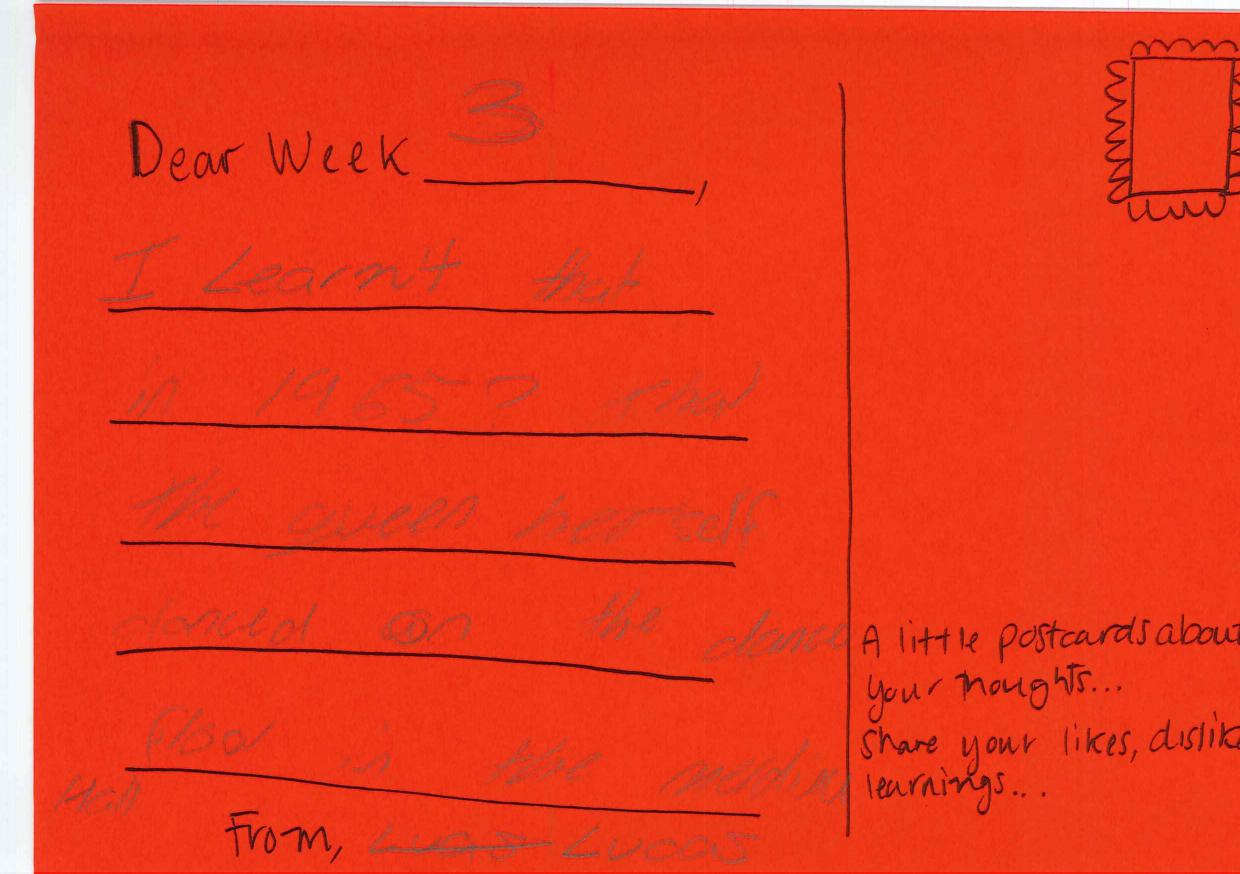 Dear Week 3,
I Learn't that
in 1965? that
the queen herself
danced on the dance
floor in the
Hall
From, Lucas
A little postcards about
your thoughts...
share your likes, dislike
learnings...